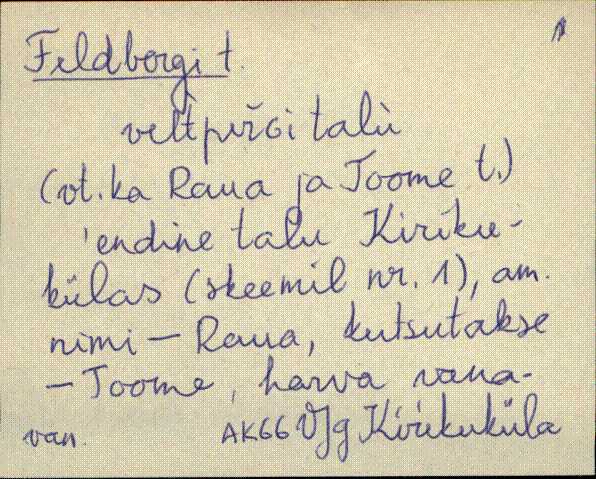 Feldbergi t.
veltperǵi talù
(vt. ka Raua ja Toome t.)
'endine talu Kiriku-
külas (skeemil nr. 1), am.
nimi - Raua, kutsutakse
- Toome, harva vana-
van. AK66 VJg Kirikuküla